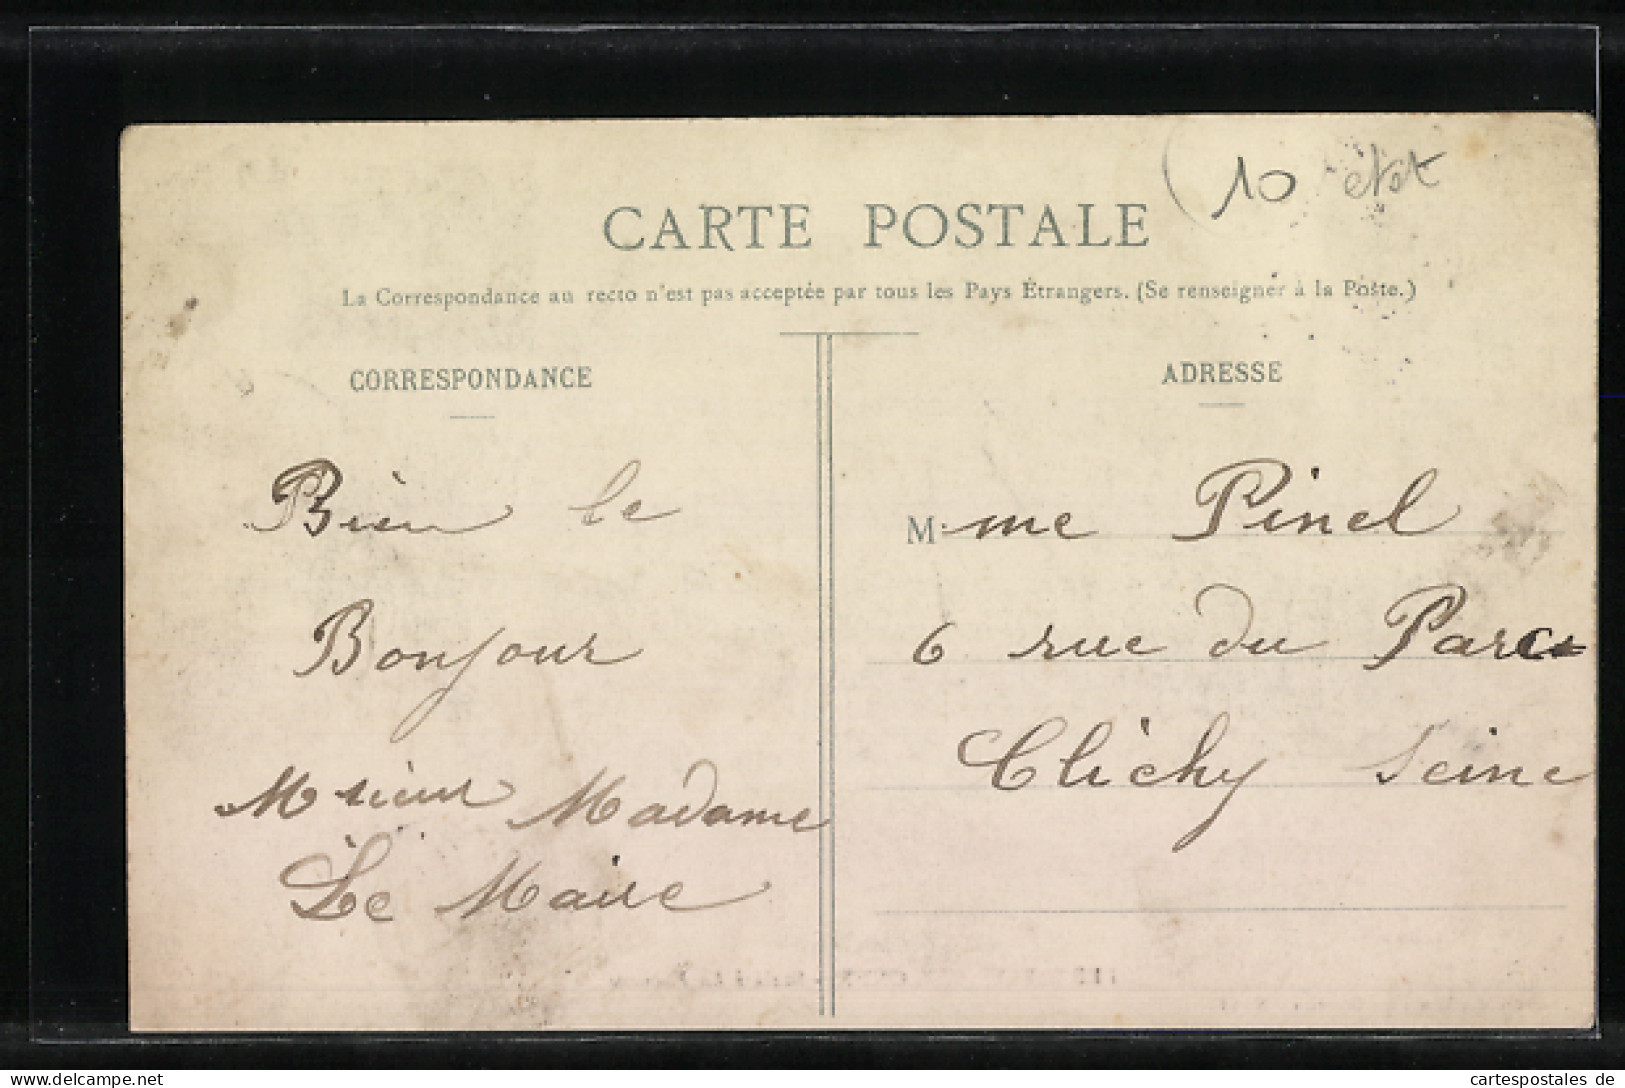 10
CARTE POSTALE
La Correspondance au recto n'est pas acceptée par tous les Pays Étrangers. (Se renseigner à la Poste.)
CORRESPONDANCE
Bien le
Bonjour
Msieur Madame
Le Maire
ADRESSE
Mme Pinel
6 rue du Parc
Clichy Seine
www.delcampe.net
cartespostales de